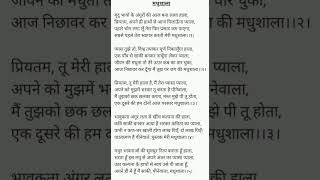 मधुशाला
मृदु भावों के अंगूरों की आज बना लाया हाला,
प्रियतम, अपने ही हाथों से आज पिलाऊँगा प्याला,
पहले भोग लगा लूँ तेरा फिर प्रसाद जग पाएगा,
सबसे पहले तेरा स्वागत करती मेरी मधुशाला।।१।
प्यास तुझे तो, विश्व तपाकर पूर्ण निकालूँगा हाला,
एक पाँव से साकी बनकर नाचूँगा लेकर प्याला,
जीवन की मधुता तो तेरे ऊपर कब का वार चुका,
आज निछावर कर दूँगा मैं तुझ पर जग की मधुशाला।।२।
प्रियतम, तू मेरी हाला है, मैं तेरा प्यासा प्याला,
अपने को मुझमें भरकर तू बनता है पीनेवाला,
मैं तुझको छक छलका करता, मस्त मुझे पी तू होता,
एक दूसरे की हम दोनों आज परस्पर मधुशाला।।३।
भावुकता अंगूर लता से खींच कल्पना की हाला,
कवि साकी बनकर आया है भरकर कविता का प्याला,
कभी न कण-भर खाली होगा लाख पिएँ, दो लाख पिएँ!
पाठकगण हैं पीनेवाले, पुस्तक मेरी मधुशाला।।४।
मधुर भावनाओं की सुमधुर नित्य बनाता हूँ हाला,
भरता हूँ इस मधु से अपने अंतर का प्यासा प्याला,
उठा कल्पना के हाथों से स्वयं उसे पी जाता हूँ,
अपने ही में हूँ मैं साकी, पीनेवाला, मधुशाला।।५।